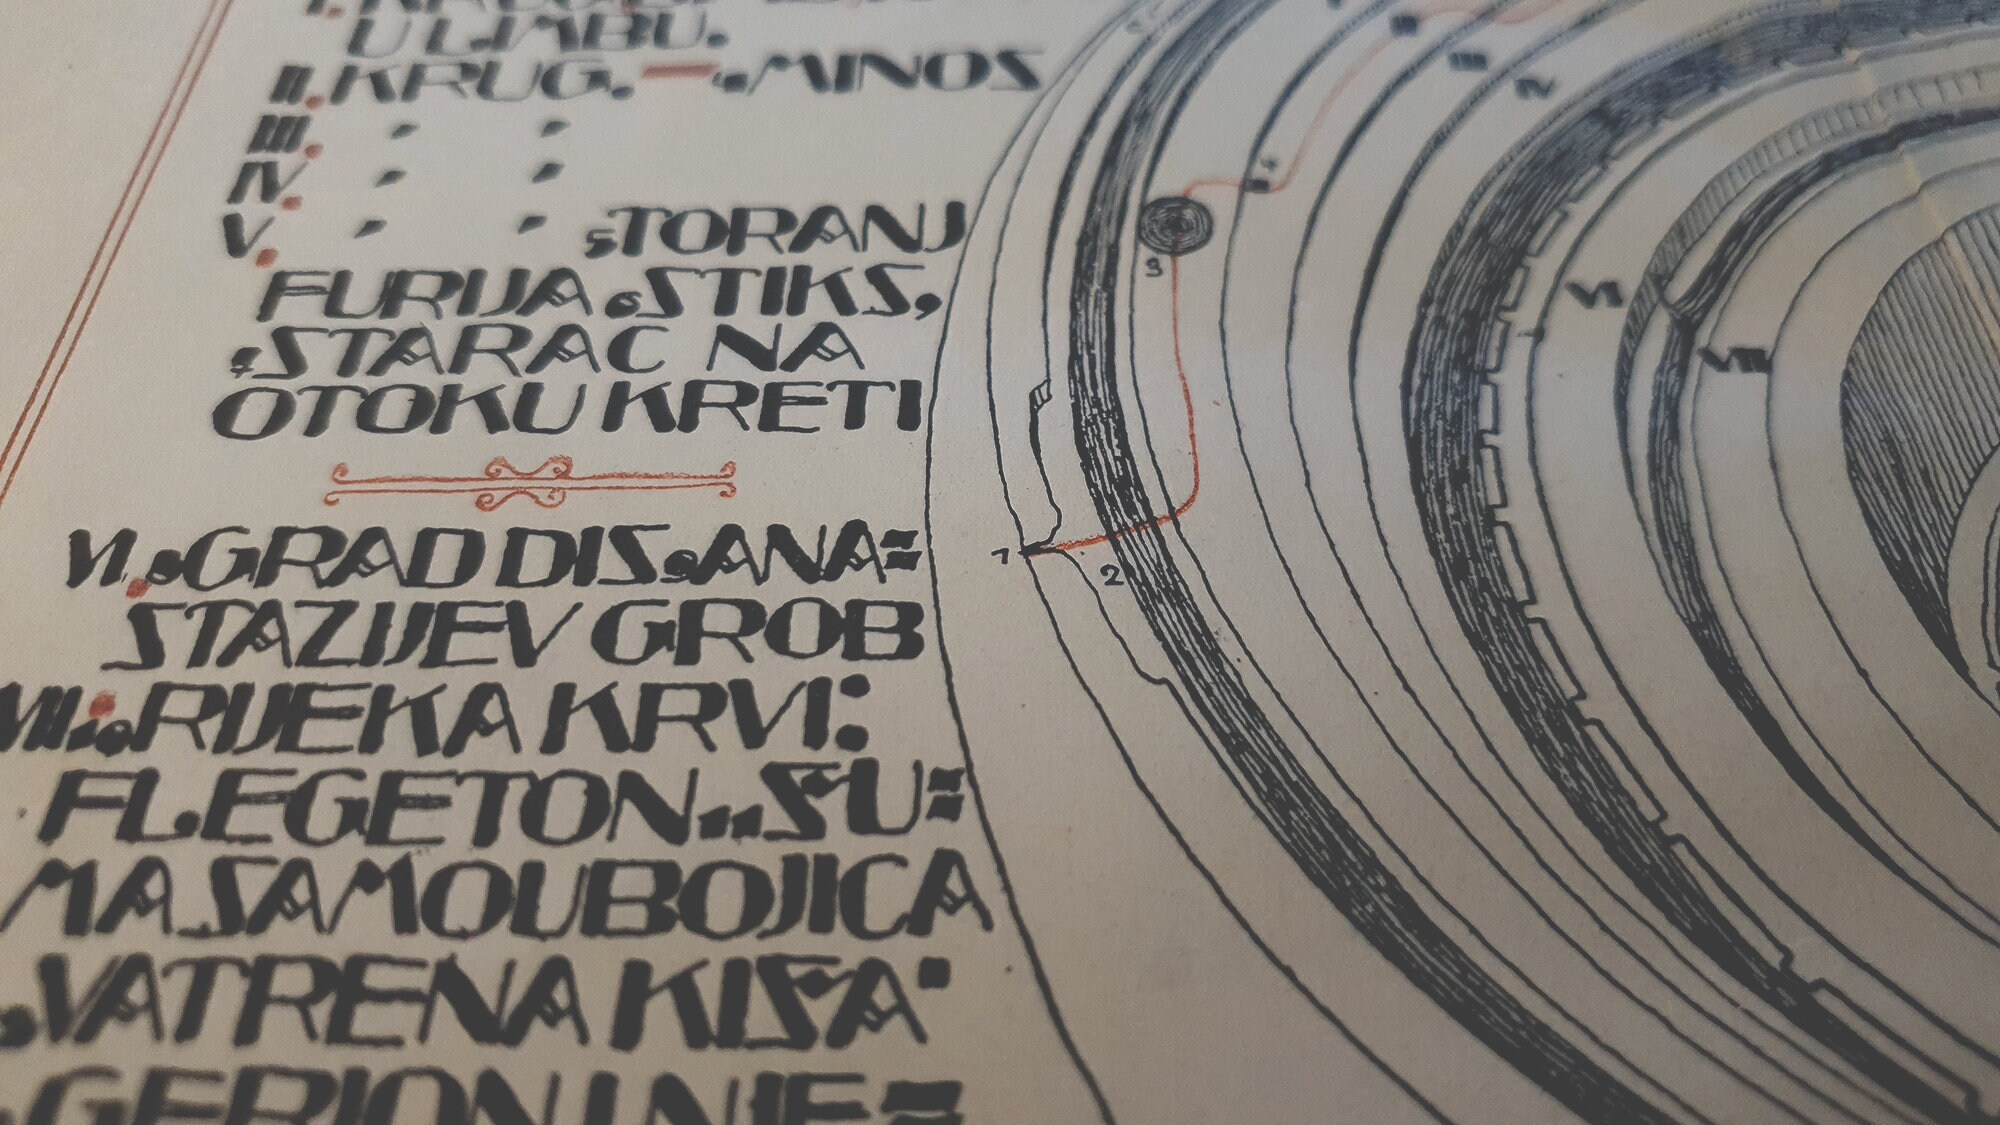 U LIMBU.
II. KRUG. — 4 MINOS
III. " "
IV. " "
V. " " 5 TORANJ
FURIJA 6 STIKS,
7 STARAC NA
OTOKU KRETI
VI. 8 GRAD DIS 9 ANA=
STAZIJEV GROB
VII. 10 RIJEKA KRVI:
FLEGETON 11 ŠU=
MA SAMOUBOJICA
VATRENA KIŠA
GERION I NJE=
II
III
IV
4
3
VI
VII
1
2